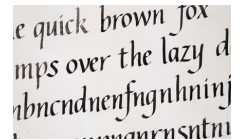 e quick brown fox
mps over the lazy d
nbncndnenfngnhninj